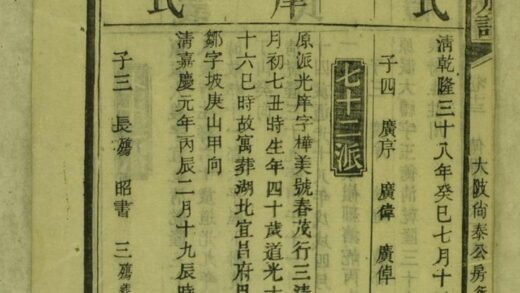 大陂尚泰公房
氏
清乾隆三十八年癸巳七月十
子四 廣序 廣偉 廣倬
七十二派
庠
原派光庠字樺美號春茂行三清
月初七丑時生年四十歲道光十
十六巳時故寓葬湖北宜昌府
鄒字坡庚山甲向
氏
清嘉慶元年丙辰二月十九辰時
子三 長殤 昭書 三殤